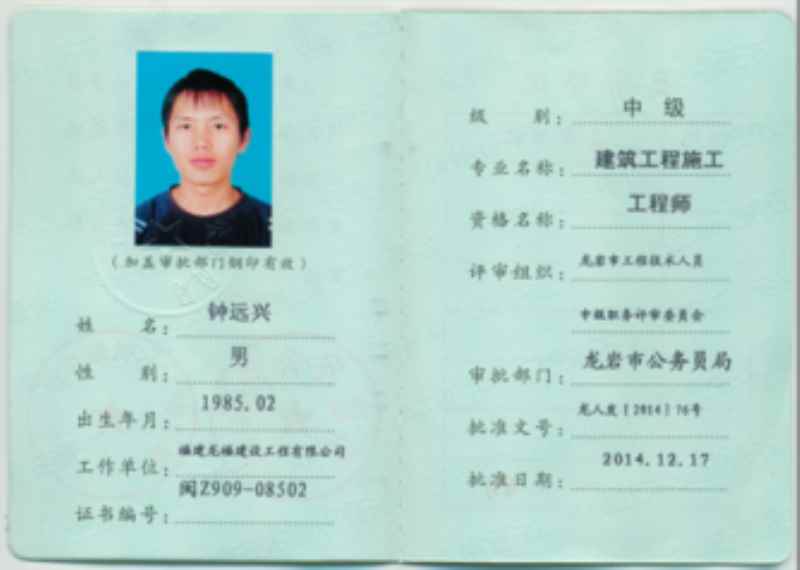 (加盖审批部门钢印有效)
姓 名: 钟远兴
性 别: 男
出生年月: 1985.02
工作单位: 福建龙福建设工程有限公司
证书编号: 闽Z909-08502
级 别: 中 级
专业名称: 建筑工程施工
资格名称: 工程师
评审组织: 龙岩市工程技术人员
中级职务评审委员会
审批部门: 龙岩市公务员局
批准文号: 龙人发〔2014〕76号
批准日期: 2014.12.17